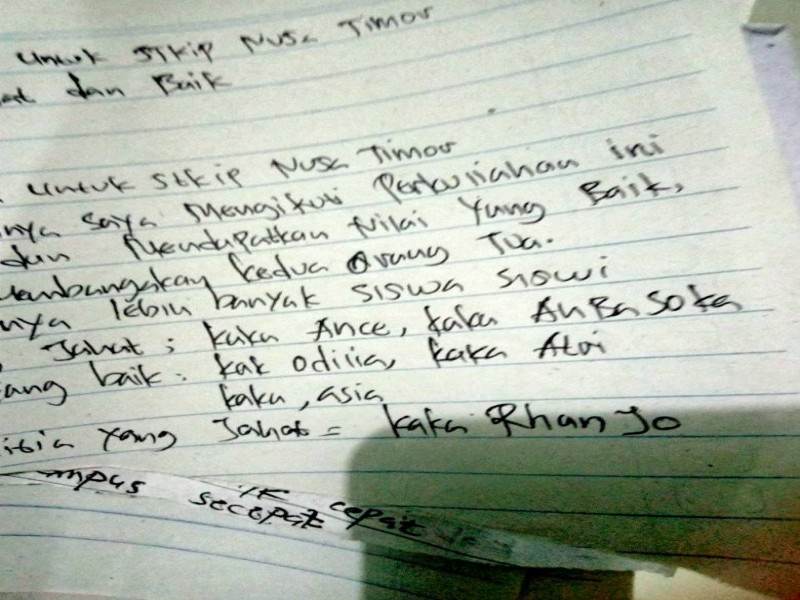 untuk STKIP Nusa Timor
dan Baik
untuk Stkip Nusa Timor
nya saya Mengikuti Perkuliahan ini
dan Mendapatkan Nilai Yang Baik,
Membangakan kedua Orang Tua.
nya lebih banyak siswa siswi
Jahat : kaka Ance, kaka An Ba Soka
ang baik : kak odilia, kaka Alvi
kaka, asia
yang Jahat = kaka Rhan Jo
mpus secepat cepat